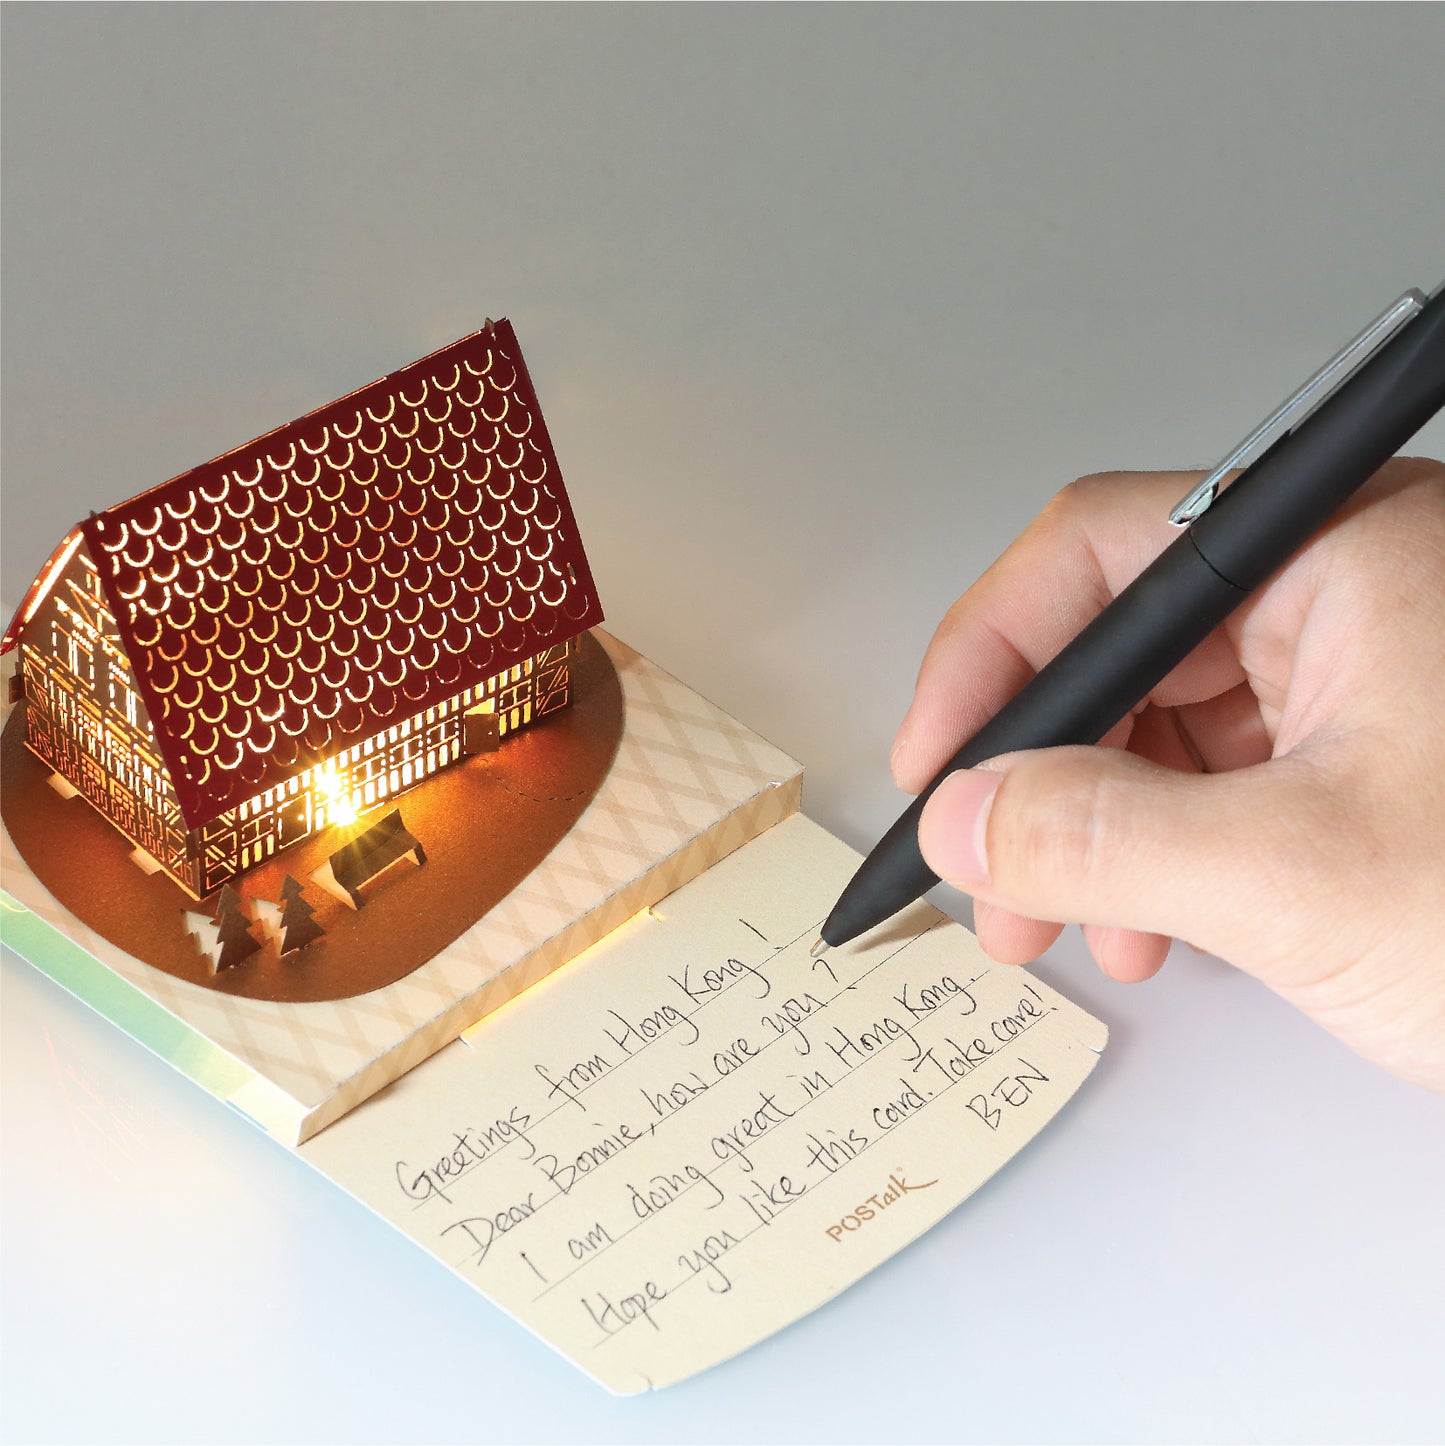 Greetings from Hong Kong !
Dear Bonnie, how are you ?
I am doing great in Hong Kong.
Hope you like this card. Take care!
BEN
POSTalk®